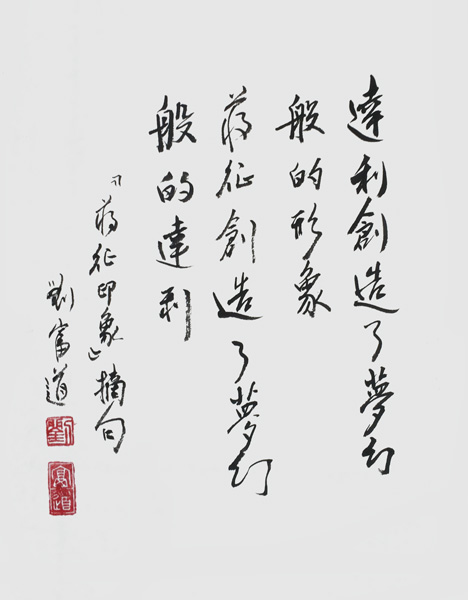 達利創造了夢幻
般的形象
蔣征創造了夢幻
般的達利
「蔣征印象」摘句
劉富道
劉
富道